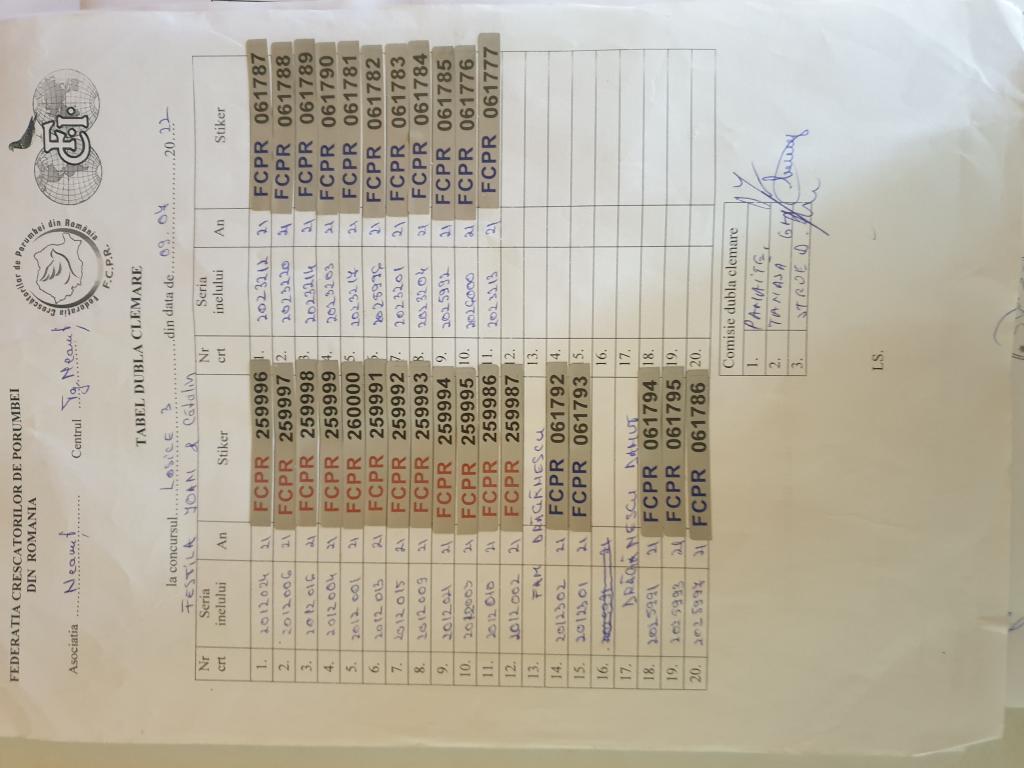 FEDERATIA CRESCATORILOR DE PORUMBEI
DIN ROMANIA
Federația Crescătorilor de Porumbei din România
F.C.P.R.
FCI
Asociatia ...Neamț........ Centrul ..Tg Neamț
TABEL DUBLA CLEMARE
la concursul......Losice 3..........din data de....09.07............20..22
FESTILA IOAN & Cătălin
Nr crt Seria inelului An Stiker Nr crt Seria inelului An Stiker
1. 2012024 21 FCPR 259996 1. 2023212 21 FCPR 061787
2. 2012006 21 FCPR 259997 2. 2023220 21 FCPR 061788
3. 2012016 21 FCPR 259998 3. 2023214 21 FCPR 061789
4. 2012004 21 FCPR 259999 4. 2023203 21 FCPR 061790
5. 2012001 21 FCPR 260000 5. 2023217 21 FCPR 061781
6. 2012013 21 FCPR 259991 6. 2025978 21 FCPR 061782
7. 2012015 21 FCPR 259992 7. 2023201 21 FCPR 061783
8. 2012009 21 FCPR 259993 8. 2023204 21 FCPR 061784
9. 2012021 21 FCPR 259994 9. 2025992 21 FCPR 061785
10. 2012003 21 FCPR 259995 10. 2026000 21 FCPR 061776
11. 2012010 21 FCPR 259986 11. 2023213 21 FCPR 061777
12. 2012002 21 FCPR 259987 12.
13. FAM DRĂGĂNESCU 13.
14. 2012302 21 FCPR 061792 14.
15. 2012301 21 FCPR 061793 5.
16. 21 16.
17. DRĂGĂNESCU DANUȚ 17.
18. 2025991 21 FCPR 061794 18.
19. 2025993 21 FCPR 061795 19.
20. 2025997 21 FCPR 061786 20.
Comisie dubla clemare
1. PAMAITE,
2. TANASĂ GH
3. STROE D.
LS.